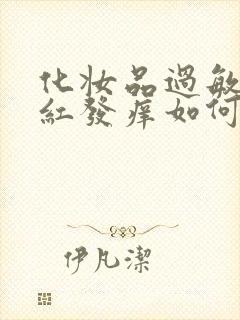 化妝品過敏
紅發癢如何
伊凡潔